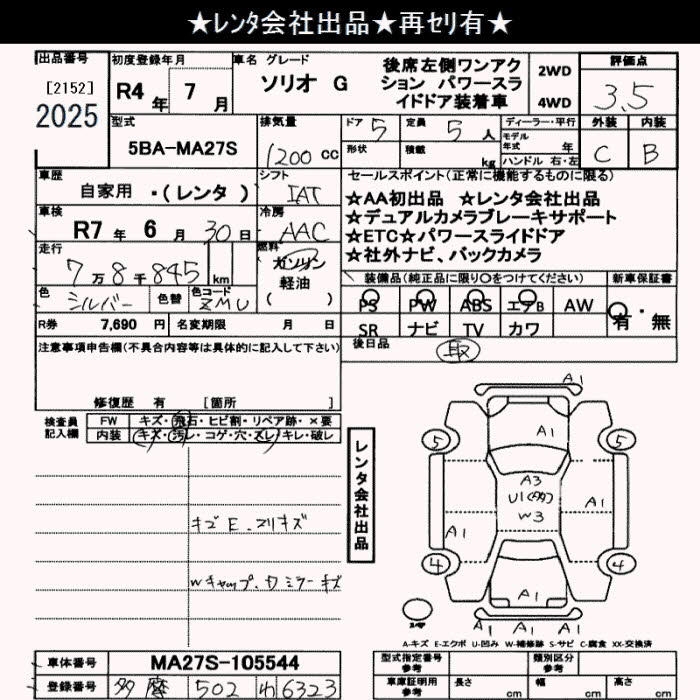 ★ﾚﾝﾀ会社出品★再ｾﾘ有★
出品番号
[2152]
2025
初度登録年月
R4年 7月
車名 グレード
ソリオ G
後席左側ワンアク
ション パワースラ
イドドア装着車
2WD
4WD
評価点
3.5
外装 内装
C B
型式
5BA-MA27S
排気量
1200 cc
ドア 5
定員 5 人
形状
積載 kg
ディーラー・平行
モデル
年式 年
ハンドル 右・左
車歴
自家用 ・(レンタ )
シフト
IAT
車検
R7 年 6 月 30 日
冷房
AAC
走行
7万8千845 km
燃料
ガソリン
軽油
( )
色 シルバー
色替
色コード
ZMU
R券 7,690 円
名変期限 月 日
セールスポイント(正常に機能するものに限る)
★AA初出品 ★レンタ会社出品
★デュアルカメラブレーキサポート
★ETC☆パワースライドドア
★社外ナビ、バックカメラ
装備品(純正品に限り○をつけてください)
新車保証書
PS PW ABS エアB AW
SR ナビ TV カワ
有・無
後日品
取
注意事項申告欄(不具合内容等は具体的に記入して下さい)
修復歴 有 [箇所 ]
検査員
記入欄
FW キズ・飛石・ヒビ割・リペア跡・×要
内装 キズ・汚レ・コゲ・穴・スレ・キレ・破レ
キズE.スリキズ
Wキャップ.カミラーキズ
レンタ会社出品
A1
A1
5
5
A3
U1(タタカ)
W3
A1
A1
4
4
A1
A1 A1 A1
A-キズ E-エクボ U-凹み W-補修跡 S-サビ C-腐食 XX-交換済
車体番号
MA27S-105544
登録番号
多摩 502 わ 6323
型式指定番号
参考
類別区分
参考
車庫証明用
参考
長さ cm
幅 cm
高さ cm